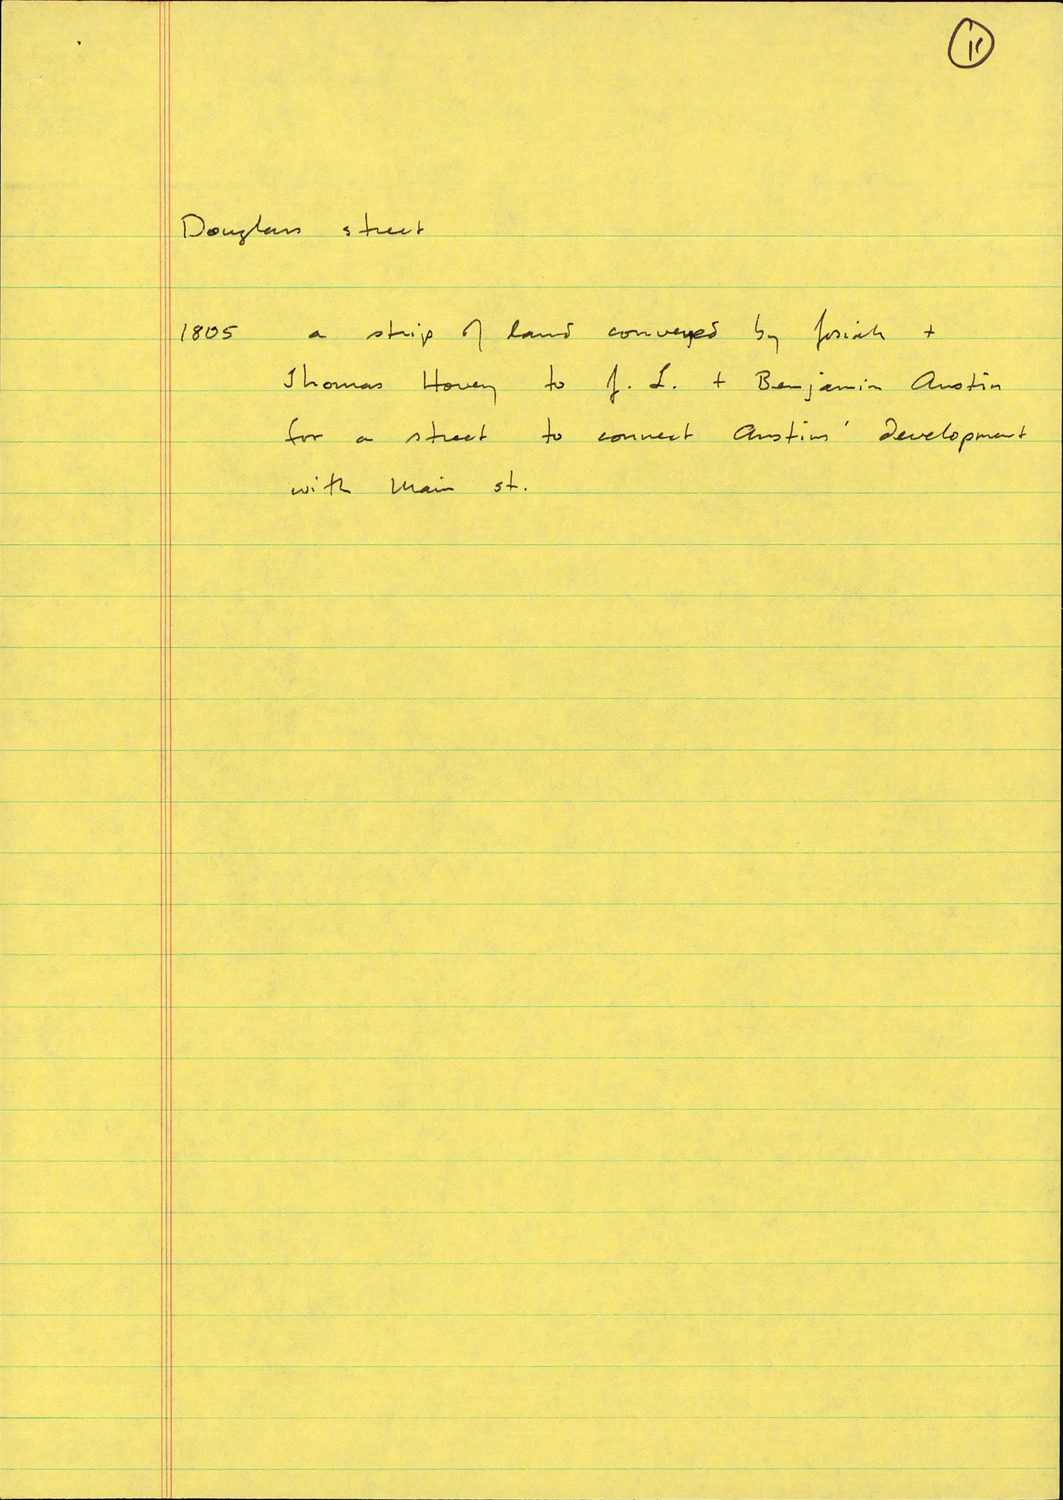 Douglass street
1805 a strip of land conveyed by Josiah +
Thomas Hovey to J. L. + Benjamin Austin
for a street to connect Austins' development
with Main st.